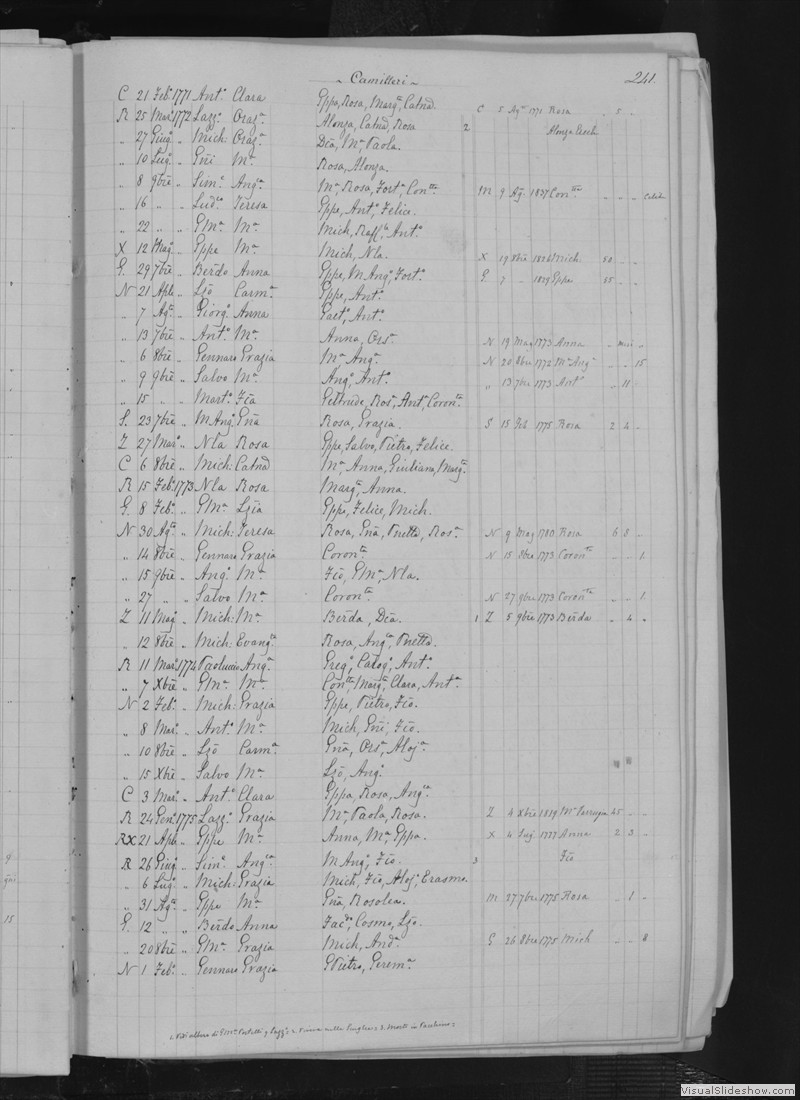 ~ Camilleri ~ 241.
C 21 Feb.º 1771 Ant.º Clara Eppa, Rosa, Marg.ª, Catnd. C 5 Ag.º 1771 Rosa „ 5 „
R 25 Mar.º 1772 Lazz.º Oraz.ª Alonza, Catnd, Rosa 2 Alonza
„ 27 Giug.º „ Mich: Oraz.ª Dca, M.ª Paola.
„ 10 Lug.º „ Gni M.ª Rosa, Alonza.
„ 8 9bre „ Sim.e Ang.ca M.ª Rosa, Fort.ª, Con.tta M 9 Ag. 1837 Con.tta „ „ „
„ 16 „ „ Lud.co Teresa Eppe, Ant.º, Felice.
„ 22 „ „ GMª M.ª Mich, Raff.le Ant.º
X 12 Mag.º „ Eppe M.ª Mich, Nla. X 19 8bre Mich. 50 „ „
G. 29 7bre „ Berdo Anna Eppe, M Ang.º, Fort.º G ? „ 1819 Eppe 55 „ „
N 21 Aple „ Lzo Carm.ª Eppe, Ant.º
„ 7 Ag.º „ Giorg.º Anna Gaet.º, Ant.º
„ 13 7bre „ Ant.º M.ª Anna, Ors.ª N 19 Mag 1773 Anna „ „
„ 6 8bre „ Gennaro Grazia M.ª Ang.ª N 20 8bre 1772 M.ª Ang.ª „ „ 15
„ 9 9bre „ Salvo M.ª Ang.º, Ant.º „ 13 7bre 1773 Ant.º „ 11 „
„ 15 „ „ Mart.º Fca Geltrude, Ros.ª, Ant.ª, Coron.ta
S. 23 7bre „ M Ang.º Gna Rosa, Grazia. S 15 Feb. 1775 Rosa 2 4 „
Z 27 Mar.º „ Nla Rosa Eppe, Salvo, Pietro, Felice.
C 6 8bre „ Mich: Catnd M.ª, Anna, Giuliana, Marg.ta
R 15 Feb.º 1773 Nla Rosa Marg.ª, Anna.
G. 8 Feb.º „ GM.ª Lzia Eppe, Felice, Mich.
N 30 Ag.º „ Mich: Teresa Rosa, Gna, Pnetta, Ros.ª N 9 Mag 1780 Rosa 6 8 „
„ 14 8bre „ Gennaro Grazia Coron.ta N 15 8bre 1773 Coron.ta „ „ 1
„ 15 9bre „ Ang.º M.ª Fco, GM.ª, Nla.
„ 27 „ „ Salvo M.ª Coron.ta N 27 9bre 1773 Coron.ta „ „ 1
Z 11 Mag.º „ Mich: M.ª Berda, Dca. 1 Z 5 9bre 1773 Berda „ 4 „
„ 12 8bre „ Mich: Evang.ta Rosa, Ang.ca, Pnetta.
R 11 Mar.º 1774 Paoluccio Ang.ª Greg.º, Calog.º, Ant.º
„ 7 Xbre „ GM.ª M.ª Con.tta, Marg.ta, Clara, Ant.ª
N 2 Feb.º „ Mich: Grazia Eppe, Pietro, Fco.
„ 8 Mar.º „ Ant.º M.ª Mich, Gni, Fco.
„ 10 8bre „ Lzo Carm.ª Gna, Ors.ª, Aloj.ª
„ 15 Xbre „ Salvo M.ª Lzo, Ang.º
C 3 Mar.º „ Ant.º Clara Eppa, Rosa, Ang.ca
R 24 Gen.º 1775 Lazz.º Grazia M.ª, Paola, Rosa. Z 4 Xbre 1819 M.ª 45 „ „
RX 21 Aple „ Eppe M.ª Anna, M.ª, Eppa. X 4 Lug. 1777 Anna 2 3 „
R 26 Giug.º „ Sim.e Ang.ca M Ang.º, Fco. 3 Fco
„ 6 Lug.º „ Mich: Grazia Mich, Fco, Aloj.º, Erasmo.
„ 31 Ag.º „ Eppe M.ª Gna, Rosolea. M 27 7bre 1775 Rosa „ 1 „
G. 12 „ „ Berdo Anna Fac.do, Cosmo, Lzo.
„ 20 8bre „ GM.ª Grazia Mich, And.ª G 26 8bre 1775 Mich „ „ 8
N 1 Feb.º „ Gennaro Grazia GPietro, Gerem.ª
9
15
VisualSlideshow.com